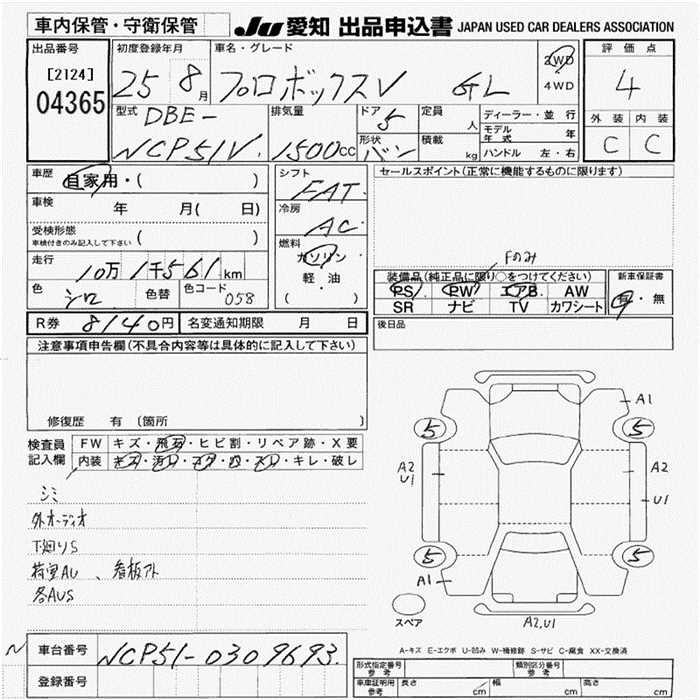 車内保管・守衛保管 JU 愛知 出品申込書 JAPAN USED CAR DEALERS ASSOCIATION
出品番号 初度登録年月 車名・グレード 評価点
[2124] 25 8月 プロボックスV GL 2WD 4
04365 4WD
外装 内装
型式 DBE- 排気量 ドア 5 定員 人 ディーラー・並行 C C
モデル年式 年
NCP51V. 1500cc 形状 バン 積載 kg ハンドル 左・右
車歴 自家用・( ) シフト FAT. セールスポイント(正常に機能するものに限ります)
車検 年 月( 日) 冷房 AC
受検形態 車検付きのみ記入して下さい ( ) 燃料 ガソリン
軽・油
( )
Fのみ
走行 10万1千561km 装備品(純正品に限り○をつけてください) 新車保証書
色 シロ 色替 色コード 058 PS PW エアB AW 有・無
SR ナビ TV カワシート
R券 8140円 名変通知期限 月 日 後日品
注意事項申告欄(不具合内容等は具体的に記入して下さい)
修復歴 有 [箇所 ]
検査員記入欄 FW キズ・飛石・ヒビ割・リペア跡・X要
内装 キズ・汚レ・コゲ・穴・スレ・キレ・破レ
A1
5 5
A2 U1 A2
U1
5 5
A1
A2,U1
スペア
シミ
外オーディオ
下廻りS
荷室AU、看板アト
各AUS
A-キズ E-エクボ U-凹み W-補修跡 S-サビ C-腐食 XX-交換済
N 車台番号 NCP51-0309693.
登録番号
形式指定番号 参考 類別区分番号 参考
車車証明用 参考 長さ cm 幅 cm 高さ cm